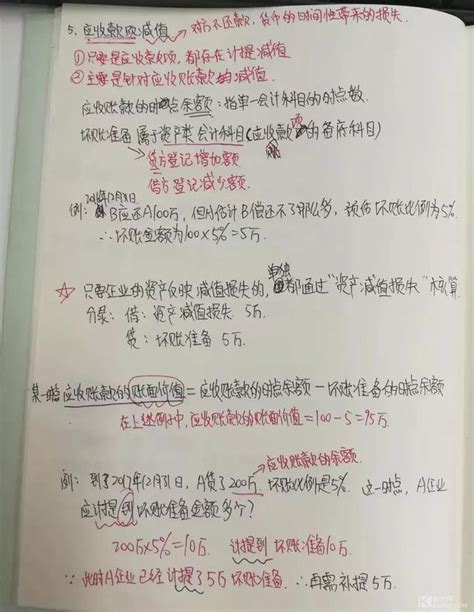 5. 应收款项减值 对方不还款，货币的时间性带来的损失.
①只要是应收款项，都存在计提减值.
②主要是针对应收账款的减值.
应收账款的时点余额：指单一会计科目的时点数.
坏账准备属于资产类会计科目(应收款项的备底科目)
贷方登记增加额
借方登记减少额.
例：B应还A100万，但A估计B偿还不了那么多，预估坏账比例为5%.
∴坏账金额为100×5%=5万.
☆只要企业的资产反映减值损失的，单独都通过"资产减值损失"核算.
分录：借：资产减值损失 5万.
贷：坏账准备 5万.
某一时点应收账款的账面价值=应收账款的时点余额-坏账准备的时点余额
在上述例子中，应收账款的账面价值=100-5=95万.
应收账款的余额.
例：到了2017年12月31日，A贷了200万，坏账比例是5%. 这一时点，A企业
应计提到坏账准备金额多个？
200万×5%=10万 计提到坏账准备10万.
∵此时A企业已经计提了5万坏账准备. ∴再需补提5万.